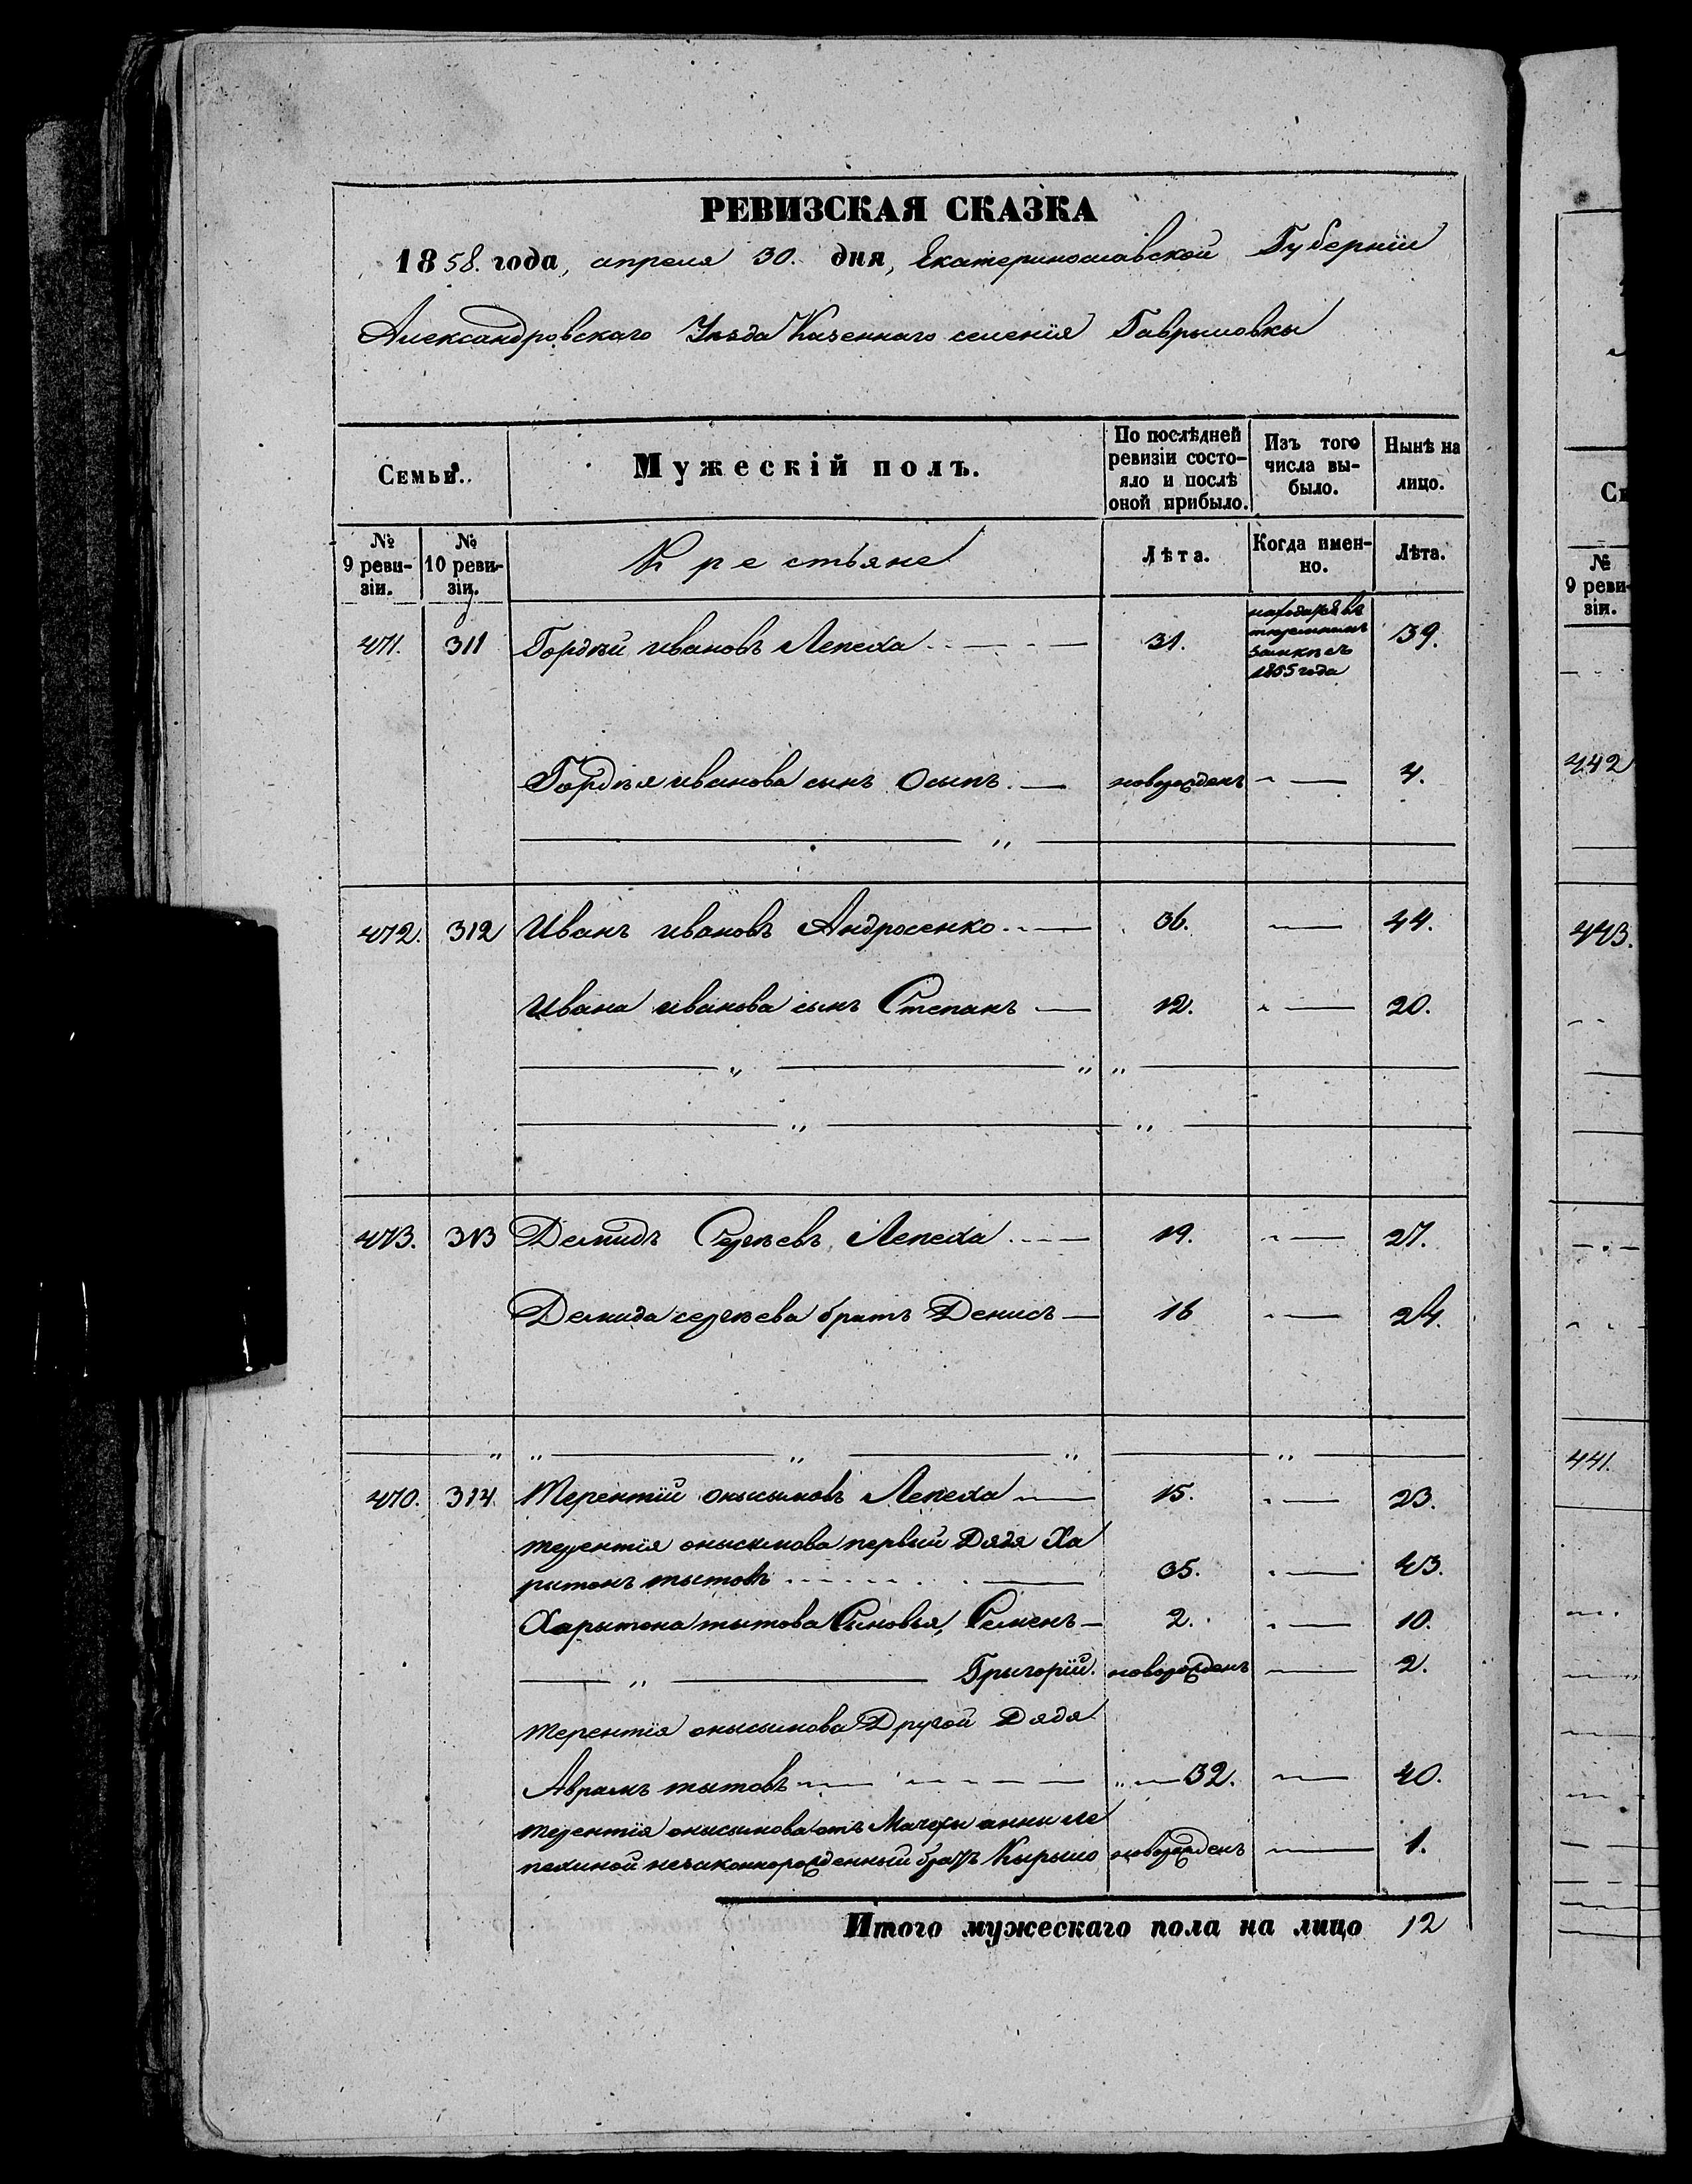 РЕВИЗСКАЯ СКАЗКА
1858. года, апреля 30. дня, Екатеринославской Губерніи
Александровскаго Уѣзда Казеннаго селенія Гаврыловкы
Семьи.
Мужескій полъ.
По послѣдней ревизіи состояло и послѣ оной прибыло.
Изъ того числа выбыло.
Нынѣ на лицо.
№ 9 ревизіи.
№ 10 ревизіи.
Крестьяне
Лѣта.
Когда именно.
Лѣта.
471. 311 Гордѣй ивановъ Лепеха 31. находится въ тюремномъ замкѣ съ 1855 года 39.
Гордѣя иванова сынъ Осыпъ новорожденъ 4.
472. 312 Иванъ ивановъ Андросенко 36. 44.
Ивана иванова сынъ Степанъ 12. 20.
473. 313 Демидъ Сергѣевъ Лепеха 19. 27.
Демида сергѣева братъ Денисъ 16 24.
470. 314. Терентій онысымовъ Лепеха 15. 23.
терентія онысымова первый Дядя Ха
рытонъ тытовъ 35. 43.
Харытона тытова Сыновья, Семенъ 2. 10.
Грыгорій. новорожденъ 2.
терентія онысымова Другой Дядя
Аврамъ тытовъ 32. 40.
терентія онысымова отъ Мачехы анны ле
пехиной незаконнорожденный братъ Кырыло новорожденъ 1.
Итого мужескаго пола на лицо 12
№ 9 ревизіи.
442
443.
441.